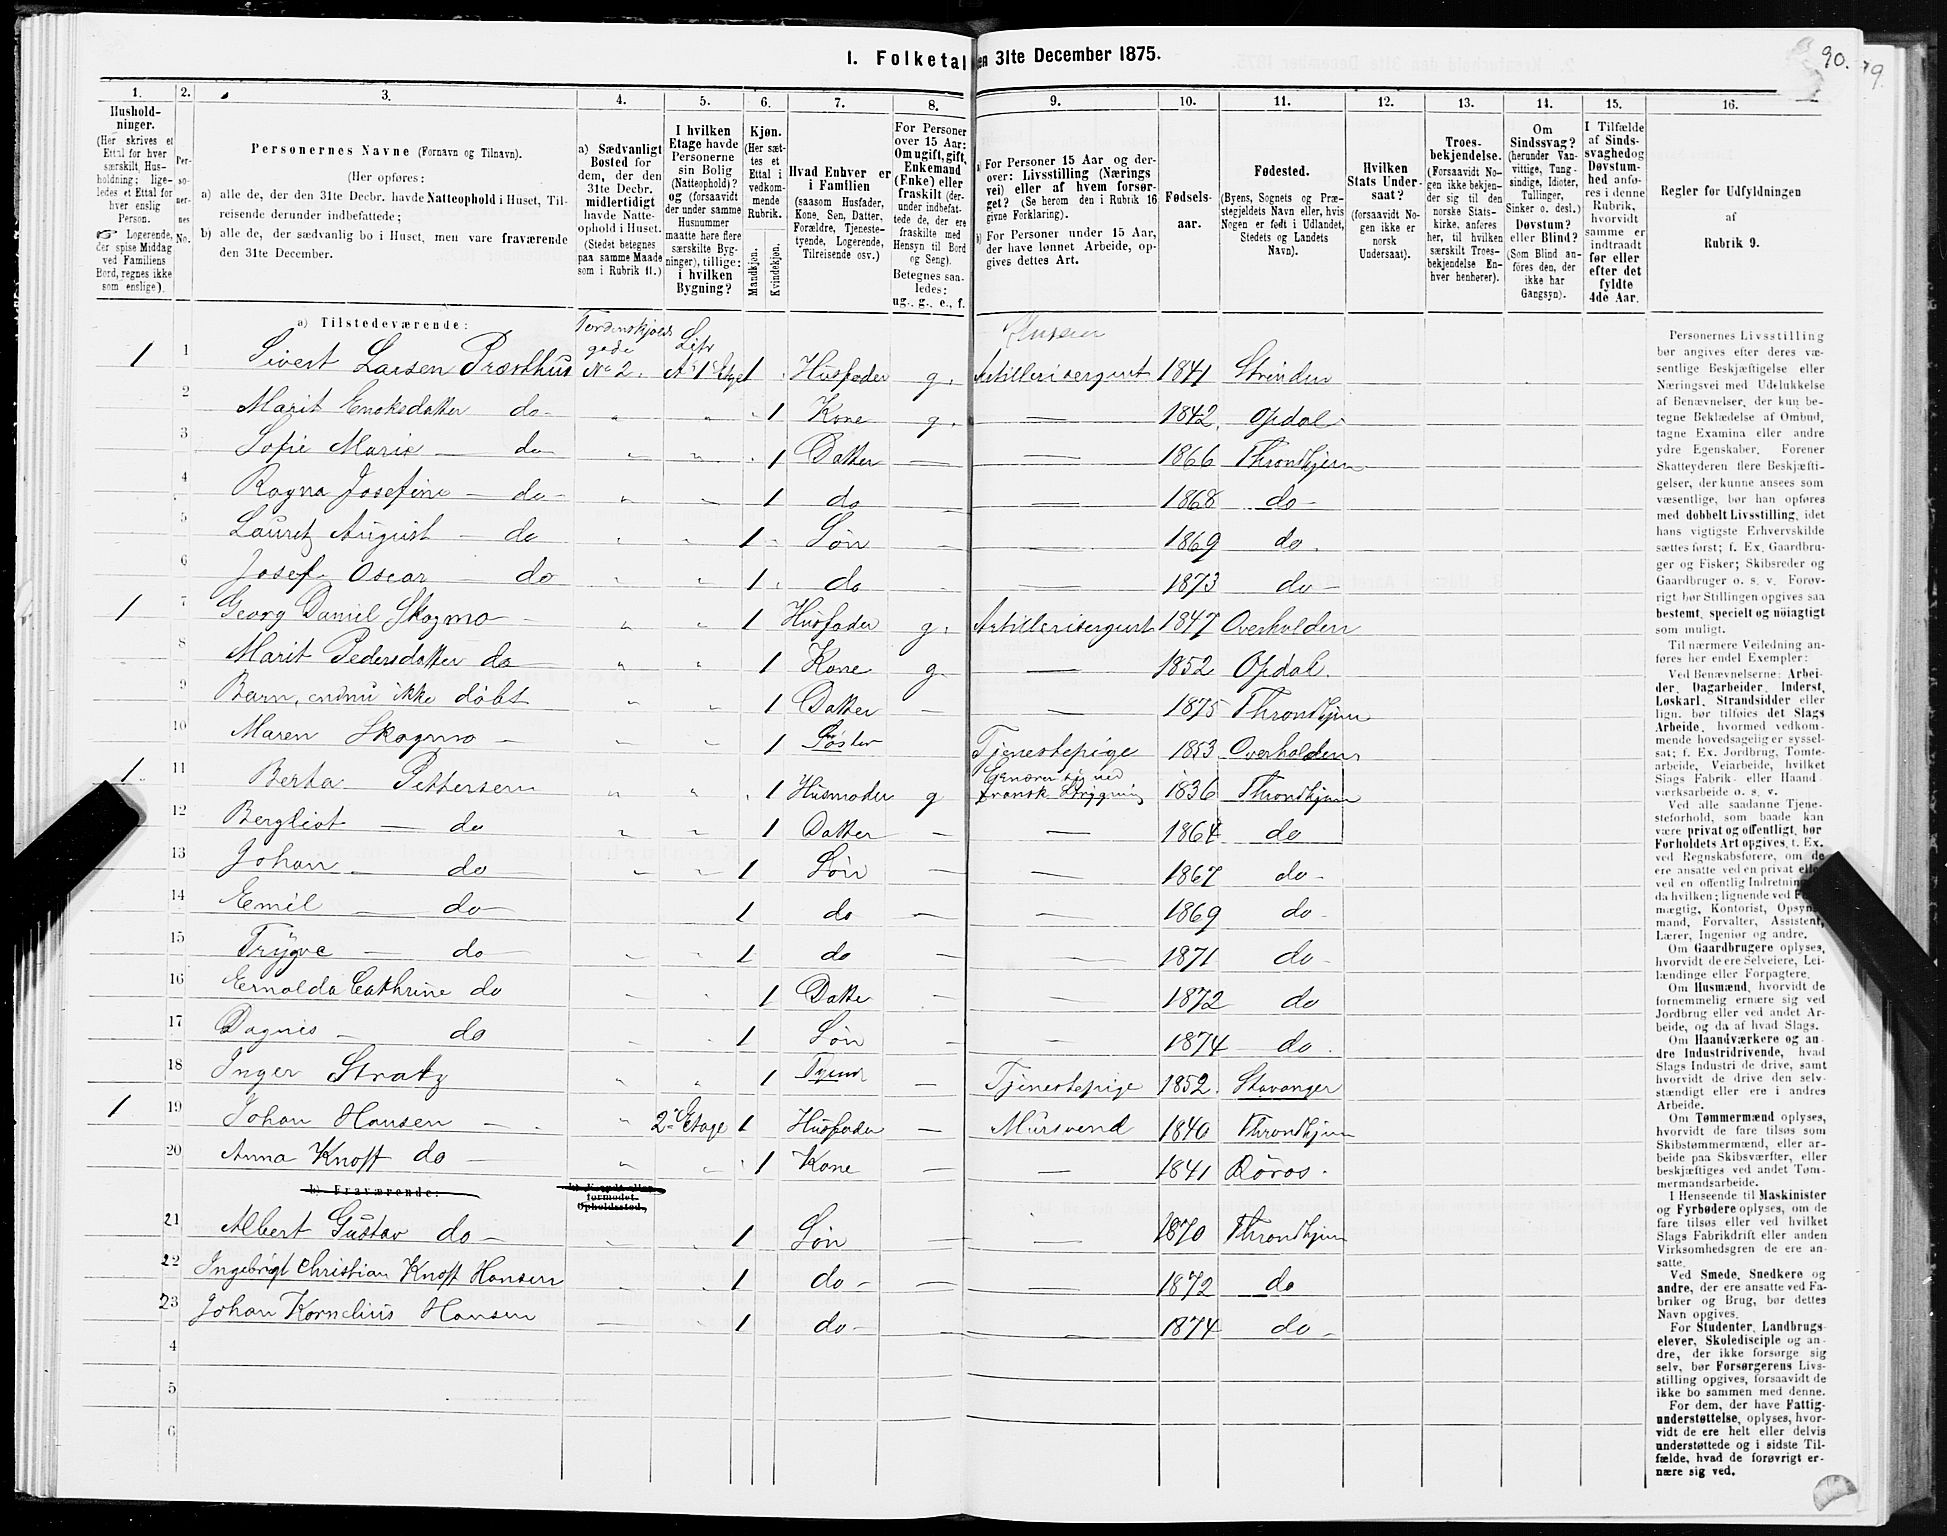 I. Folketal
en 31te December 1875.
90.
79.
1.
2.
3.
4.
5.
6.
7.
8.
9.
10.
11.
12.
13.
14.
15.
16.
Hushold-
ninger.
(Her skrives et
Ettal for hver
særskilt Hus-
holdning; lige-
ledes et Ettal for
hver enslig
Person.
☞ Logerende,
der spise Middag
ved Familiens
Bord, regnes ikke
som enslige).
Per-
so-
ner-
nes
No.
Personernes Navne (Fornavn og Tilnavn).
(Her opføres:
a) alle de, der den 31te Decbr. havde Natteophold i Huset, Til-
reisende derunder indbefattede;
b) alle de, der sædvanlig bo i Huset, men vare fraværende
den 31te December.
a) Sædvanligt
Bosted for
dem, der den
31te Decbr.
midlertidigt
havde Natte-
ophold i Huset.
(Stedet betegnes
paa samme Maade
som i Rubrik 11.)
I hvilken
Etage havde
Personerne
sin Bolig
(Natteophold)?
og (forsaavidt
der under samme
Husnummer
maatte høre flere
særskilte Byg-
ninger), tillige:
i hvilken
Bygning?
Kjøn.
(Her sæt-
tes et
Ettal i
vedkom-
mende
Rubrik.
Mandkjøn.
Kvindekjøn.
Hvad Enhver er
i Familien
(saasom Husfader,
Kone, Søn, Datter,
Forældre, Tjeneste-
tyende, Logerende,
Tilreisende osv.)
For Personer
over 15 Aar:
Om ugift, gift,
Enkemand
(Enke) eller
fraskilt (der-
under indbefat-
tede de, der ere
fraskilte med
Hensyn til Bord
og Seng).
Betegnes saa-
ledes:
ug., g., e., f.
a) For Personer 15 Aar og der-
over: Livsstilling (Nærings-
vei) eller af hvem forsør-
get? (Se herom den i Rubrik 16
givne Forklaring).
b) For Personer under 15 Aar,
der have lønnet Arbeide, op-
gives dettes Art.
Fødsels-
aar.
Fødested.
(Byens, Sognets og Præ-
stegjeldets Navn eller, hvis
Nogen er født i Udlandet,
Stedets og Landets
Navn).
Hvilken
Stats Under-
saat?
(forsaavidt No-
gen ikke er
norsk
Undersaat).
Troes-
bekjendelse.
(Forsaavidt No-
gen ikke bekjen-
der sig til den
norske Stats-
kirke, anføres
her, til hvilken
særskilt Troes-
bekjendelse En-
hver henhører).
Om
Sindssvag?
(herunder Van-
vittige, Tung-
sindige, Idioter,
Tullinger,
Sinker o. desl.)
Døvstum?
eller Blind?
(Som Blind an-
føres den, der
ikke har
Gangsyn).
I Tilfælde
af Sinds-
svaghed og
Døvstum-
hed anfø-
res i denne
Rubrik,
hvorvidt
samme er
indtraadt
før eller
efter det
fyldte
4de Aar.
Regler for Udfyldningen
af
Rubrik 9.
a) Tilstedeværende:
Tordenskjolds
gade
1 1 Sivert Larsen Præsthus No 2. 1 Etage 1 Husfader g. Artillerisergent 1841 Strinden
2 Marit Enoksdatter do 1 Kone g. 1842 Opdal
3 Sofie Marie do 1 Datter 1866 Throndhjem
4 Ragna Josefine do 1 do 1868 do
5 Lauretz August do 1 Søn 1869 do
6 Josef Oscar do 1 do 1873 do
1 7 Georg Daniel Skogmo 1 Husfader g. Artillerisergent 1847 Overhalden
8 Marit Pedersdatter do 1 Kone g 1852 Opdal.
9 Barn, endnu ikke døbt 1 Datter 1875 Throndhjem
10 Maren Skogmo 1 Søster Tjenestepige 1853 Overhalden
Ernærer sig ved
1 11 Berta Pettersen 1 Husmoder g fransk Strygning 1836 Throndhjem
12 Bergliot do 1 Datter 1864 do
13 Johan do 1 Søn 1867 do
14 Emil do 1 do 1869 do
15 Trygve do 1 do 1871 do
16 Ernolda Cathrine do 1 Datter 1872 do
17 Dagnis do 1 Søn 1874 do
18 Inger Stratz 1 Tyende Tjenestepige 1852 Stavanger
1 19 Johan Hansen 2 Etage 1 Husfader Mursvend 1840 Throndhjem
20 Anna Knoff do 1 Kone 1841 Røros
b) Fraværende:
formodet
Opholdssted.
21 Albert Gustav do 1 Søn 1870 Throndhjem
22 Ingebrigt Christian Knoff Hansen 1 do 1872 do
23 Johan Kornelius Hansen 1 do 1874 do
4
5
6
Personernes Livsstilling
bør angives efter deres væ-
sentlige Beskjæftigelse eller
Næringsvei med Udelukkelse
af Benævnelser, der kun be-
tegne Beklædelse af Ombud,
tagne Examina eller andre
ydre Egenskaber. Forener
Skatteyderen flere Beskjæfti-
gelser, der kunne ansees som
væsentlige, bør han opføres
med dobbelt Livsstilling, idet
hans vigtigste Erhvervskilde
sættes først; f. Ex. Gaardbru-
ger og Fisker; Skibsreder og
Gaardbruger o. s. v. Forøv-
rigt bør Stillingen opgives saa
bestemt, specielt og nöiagtigt
som muligt.
Til nærmere Veiledning an-
føres her endel Exempler:
Ved Benævnelserne: Arbei-
der, Dagarbeider, Inderst,
Løskarl, Strandsidder eller
lign. bør tilføies det Slags
Arbeide, hvormed vedkom-
mende hovedsagelig er syssel-
sat; f. Ex. Jordbrug, Tomte-
arbeide, Veiarbeide, hvilket
Slags Fabrik- eller Haand-
værksarbeide o. s. v.
Ved alle saadanne Tjene-
steforhold, som baade kan
være privat og offentligt, bør
Forholdets Art opgives, f. Ex.
ved Regnskabsførere, om de
ere ansatte ved en privat eller
ved en offentlig Indretning
da hvilken; lignende ved
mægtig, Kontorist, Opsyns-
mand, Forvalter, Assistent,
Lærer, Ingeniør og andre.
Om Gaardbrugere oplyses,
hvorvidt de ere Selveiere, Lei-
lændinge eller Forpagtere.
Om Husmænd, hvorvidt de
fornemmelig ernære sig ved
Jordbrug eller ved andet Ar-
beide, og da af hvad Slags.
Om Haandværkere og an-
dre Industridrivende, hvad
Slags Industri de drive, samt
hvorvidt de drive den selv-
stændigt eller ere i andres
Arbeide.
Om Tømmermænd oplyses,
hvorvidt de fare tilsøs som
Skibstømmermænd, eller ar-
beide paa Skibsværfter, eller
beskjæftiges ved andet Tøm-
mermandsarbeide.
I Henseende til Maskinister
og Fyrbødere oplyses, om de
fare tilsøs eller ved hvilket
Slags Fabrikdrift eller anden
Virksomhedsgren de ere an-
satte.
Ved Smede, Snedkere og
andre, der ere ansatte ved Fa-
briker og Brug, bør dettes
Navn opgives.
For Studenter, Landbrugs-
elever, Skoledisciple og an-
dre, der ikke forsørge sig
selv, bør Forsørgerens Livs-
stilling opgives, forsaavidt de
ikke bo sammen med denne.
For dem, der have Fattig-
understøttelse, oplyses, hvor-
vidt de ere helt eller delvis
understøttede og i sidste Til-
fælde, hvad de forøvrigt er-
nære sig ved.